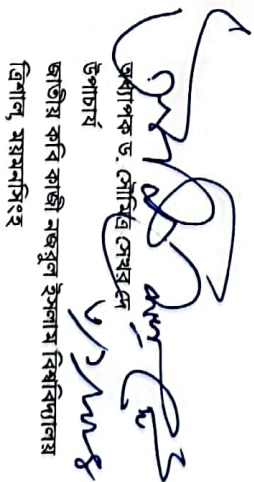 অধ্যাপক ড. সৌমিত্র শেখর দে
উপাচার্য
জাতীয় কবি কাজী নজরুল ইসলাম বিশ্ববিদ্যালয়
ত্রিশাল, ময়মনসিংহ